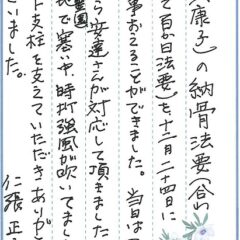 康子)の納骨法要(合わ
て百か日法要)を十二月二十四日に
事おえることができました。当日は
ら安達さんが対応して頂きました
霊園
地で寒い中、時折強風が吹いてまし
ト支柱を支えていただきありが
いました。
仁張 正